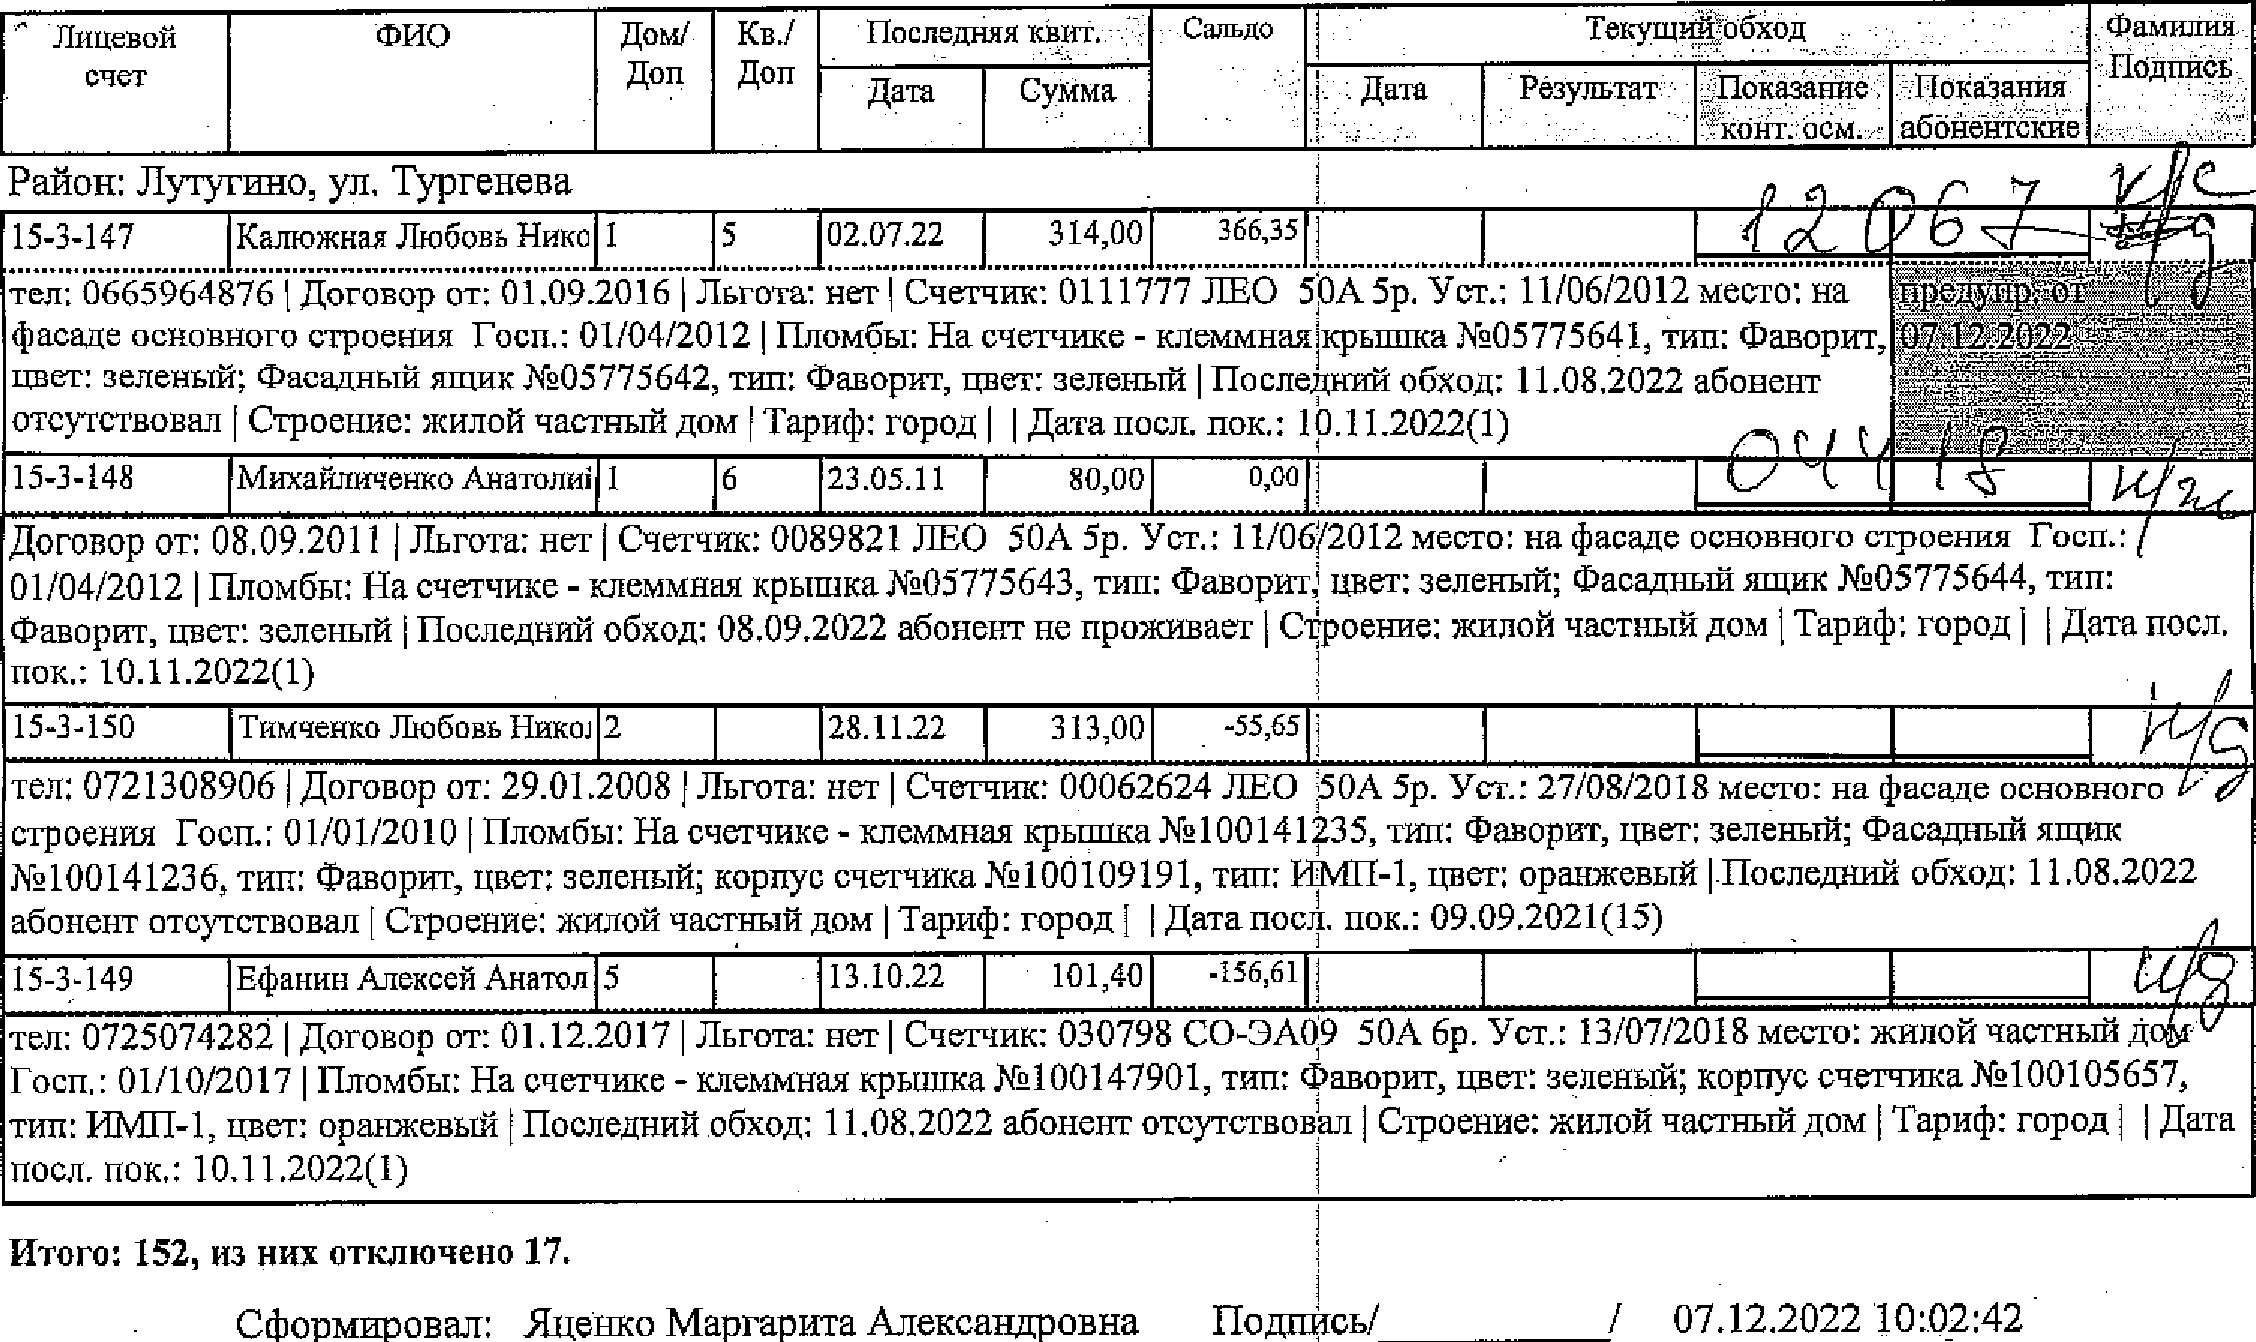 Лицевой счет | ФИО | Дом/ Доп | Кв./ Доп | Последняя квит. | Сальдо | Текущий обход | Фамилия Подпись
Дата | Сумма | Дата | Результат | Показание конт. осм. | Показания абонентские
Район: Лутугино, ул. Тургенева
15-3-147 | Калюжная Любовь Нико | 1 | 5 | 02.07.22 | 314,00 | 366,35 | 12067 | к/с н/д
тел: 0665964876 | Договор от: 01.09.2016 | Льгота: нет | Счетчик: 0111777 ЛЕО 50А 5р. Уст.: 11/06/2012 место: на
фасаде основного строения Госп.: 01/04/2012 | Пломбы: На счетчике - клеммная крышка №05775641, тип: Фаворит,
цвет: зеленый; Фасадный ящик №05775642, тип: Фаворит, цвет: зеленый | Последний обход: 11.08.2022 абонент
отсутствовал | Строение: жилой частный дом | Тариф: город | | Дата посл. пок.: 10.11.2022(1)
предупр. от
07.12.2022
15-3-148 | Михайличенко Анатолий | 1 | 6 | 23.05.11 | 80,00 | 0,00 | 04418 | н/ж
Договор от: 08.09.2011 | Льгота: нет | Счетчик: 0089821 ЛЕО 50А 5р. Уст.: 11/06/2012 место: на фасаде основного строения Госп.:
01/04/2012 | Пломбы: На счетчике - клеммная крышка №05775643, тип: Фаворит, цвет: зеленый; Фасадный ящик №05775644, тип:
Фаворит, цвет: зеленый | Последний обход: 08.09.2022 абонент не проживает | Строение: жилой частный дом | Тариф: город | | Дата посл.
пок.: 10.11.2022(1)
15-3-150 | Тимченко Любовь Никол | 2 | 28.11.22 | 313,00 | -55,65 | н/д
тел: 0721308906 | Договор от: 29.01.2008 | Льгота: нет | Счетчик: 00062624 ЛЕО 50А 5р. Уст.: 27/08/2018 место: на фасаде основного
строения Госп.: 01/01/2010 | Пломбы: На счетчике - клеммная крышка №100141235, тип: Фаворит, цвет: зеленый; Фасадный ящик
№100141236, тип: Фаворит, цвет: зеленый; корпус счетчика №100109191, тип: ИМП-1, цвет: оранжевый | Последний обход: 11.08.2022
абонент отсутствовал | Строение: жилой частный дом | Тариф: город | | Дата посл. пок.: 09.09.2021(15)
15-3-149 | Ефанин Алексей Анатол | 5 | 13.10.22 | 101,40 | -156,61 | н/д
тел: 0725074282 | Договор от: 01.12.2017 | Льгота: нет | Счетчик: 030798 СО-ЭА09 50А 6р. Уст.: 13/07/2018 место: жилой частный дом
Госп.: 01/10/2017 | Пломбы: На счетчике - клеммная крышка №100147901, тип: Фаворит, цвет: зеленый; корпус счетчика №100105657,
тип: ИМП-1, цвет: оранжевый | Последний обход: 11.08.2022 абонент отсутствовал | Строение: жилой частный дом | Тариф: город | | Дата
посл. пок.: 10.11.2022(1)
Итого: 152, из них отключено 17.
Сформировал: Яценко Маргарита Александровна Подпись/________/ 07.12.2022 10:02:42